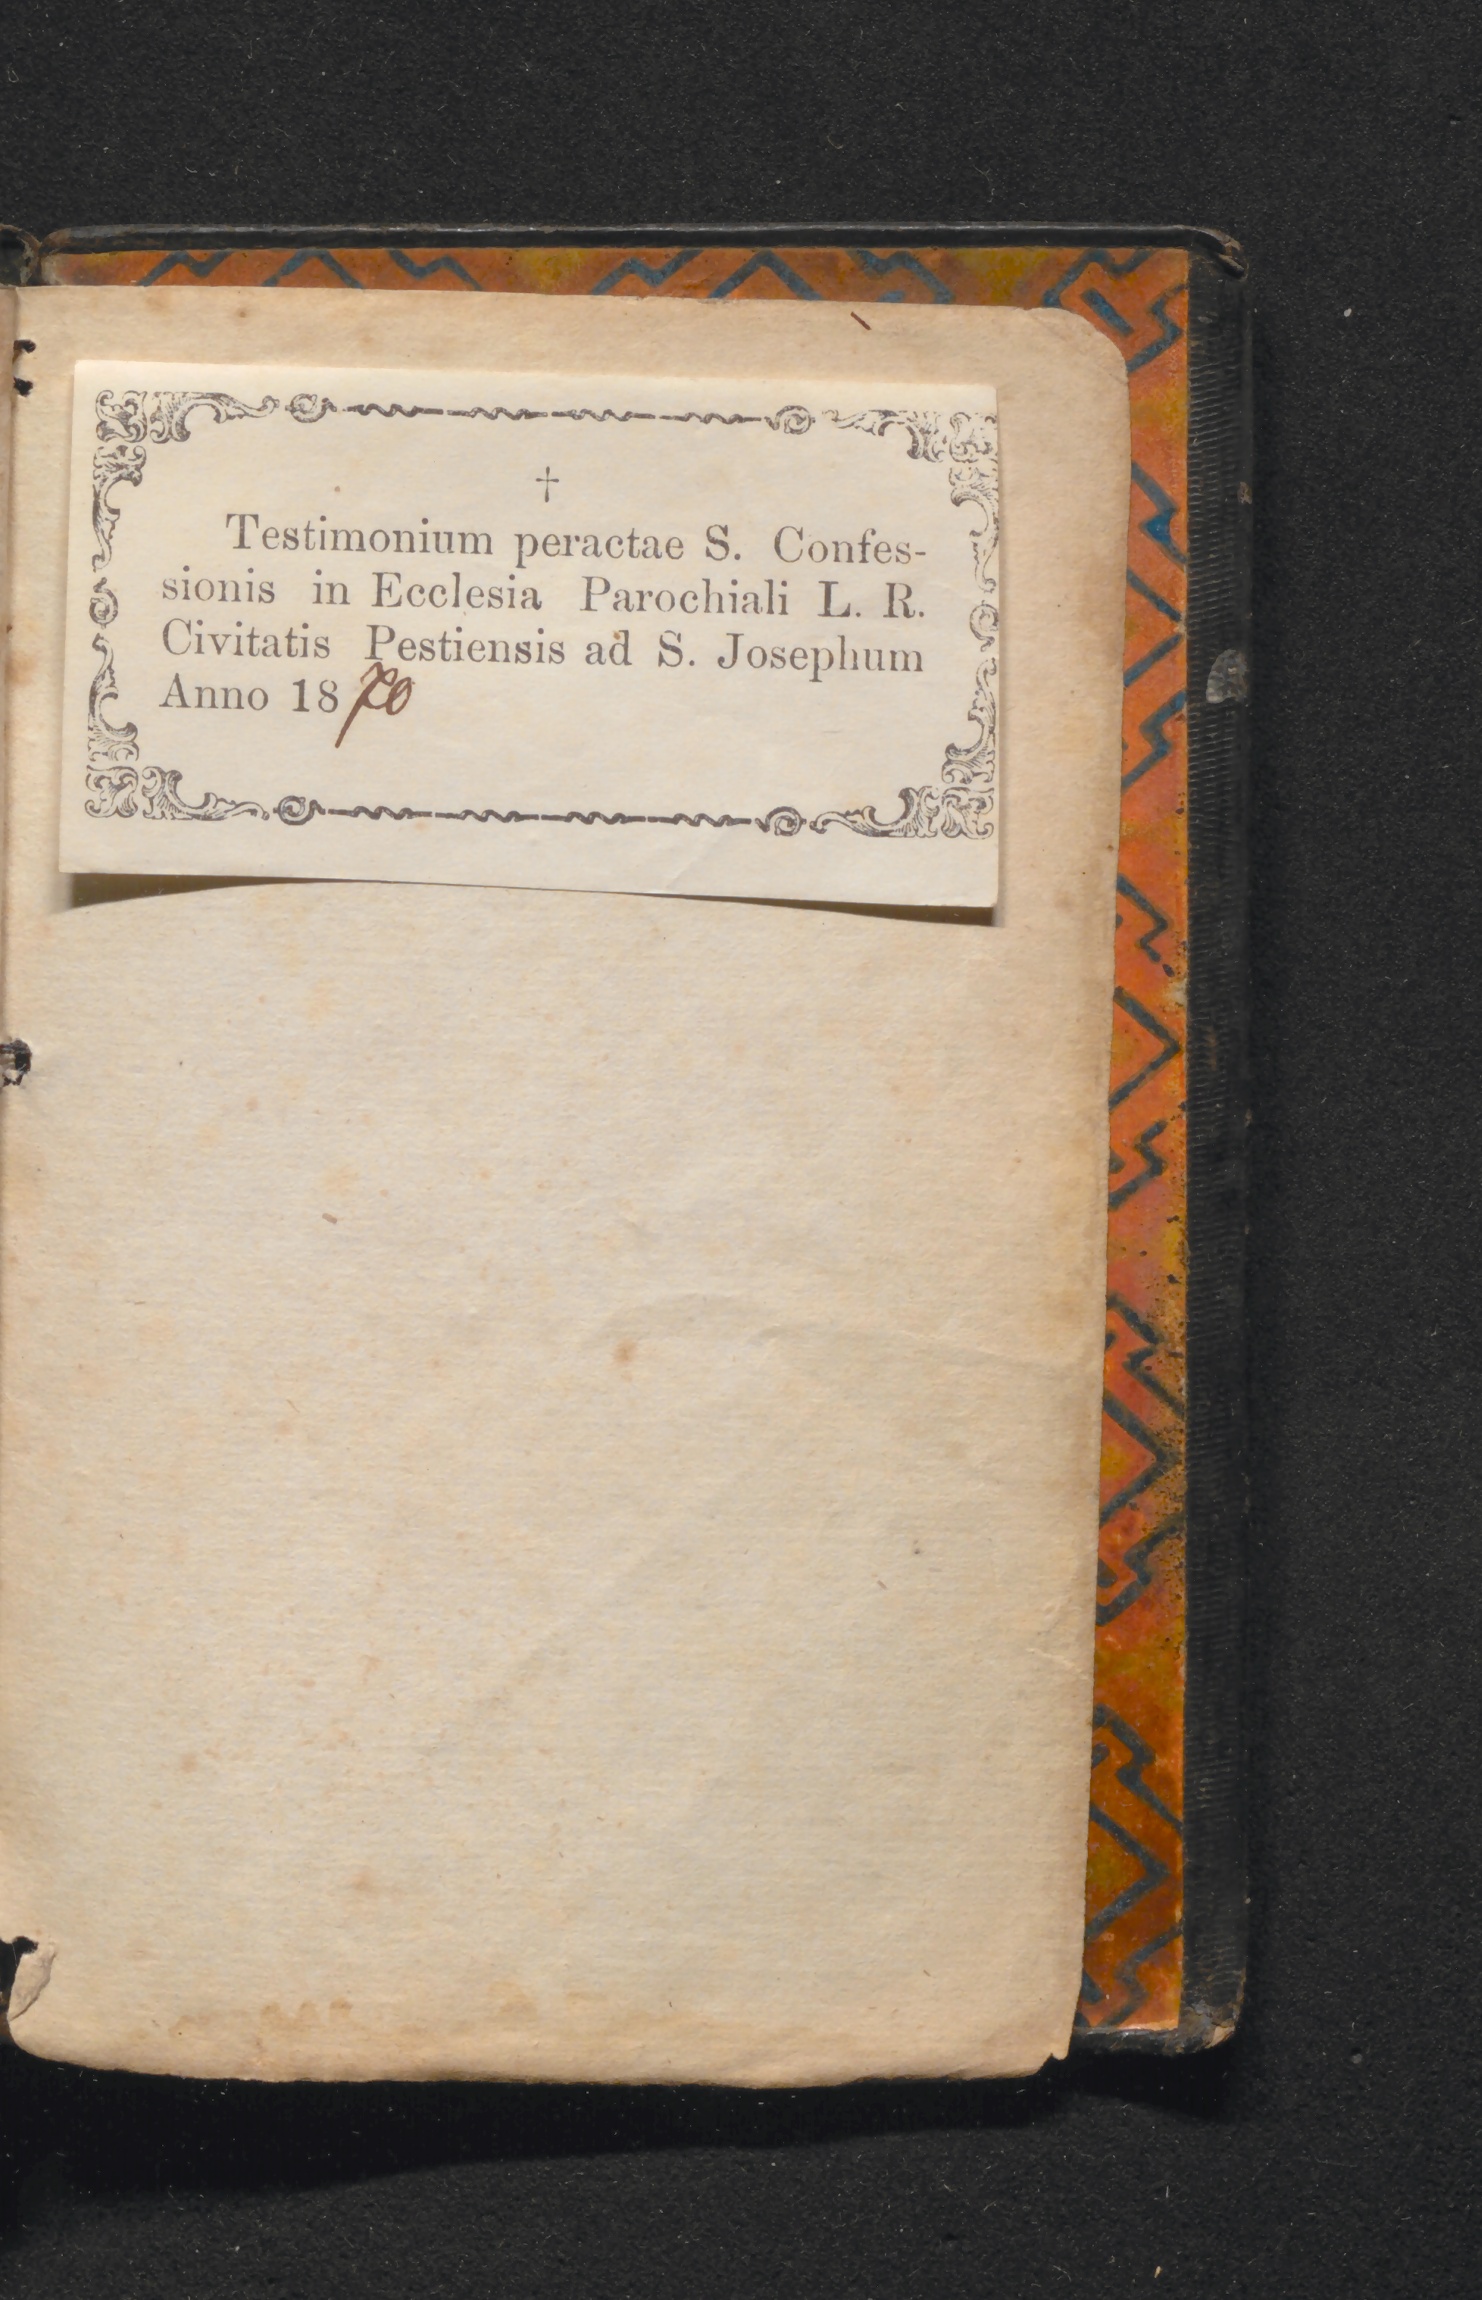 †
Testimonium peractae S. Confes-
sionis in Ecclesia Parochiali L. R.
Civitatis Pestiensis ad S. Josephum
Anno 1870